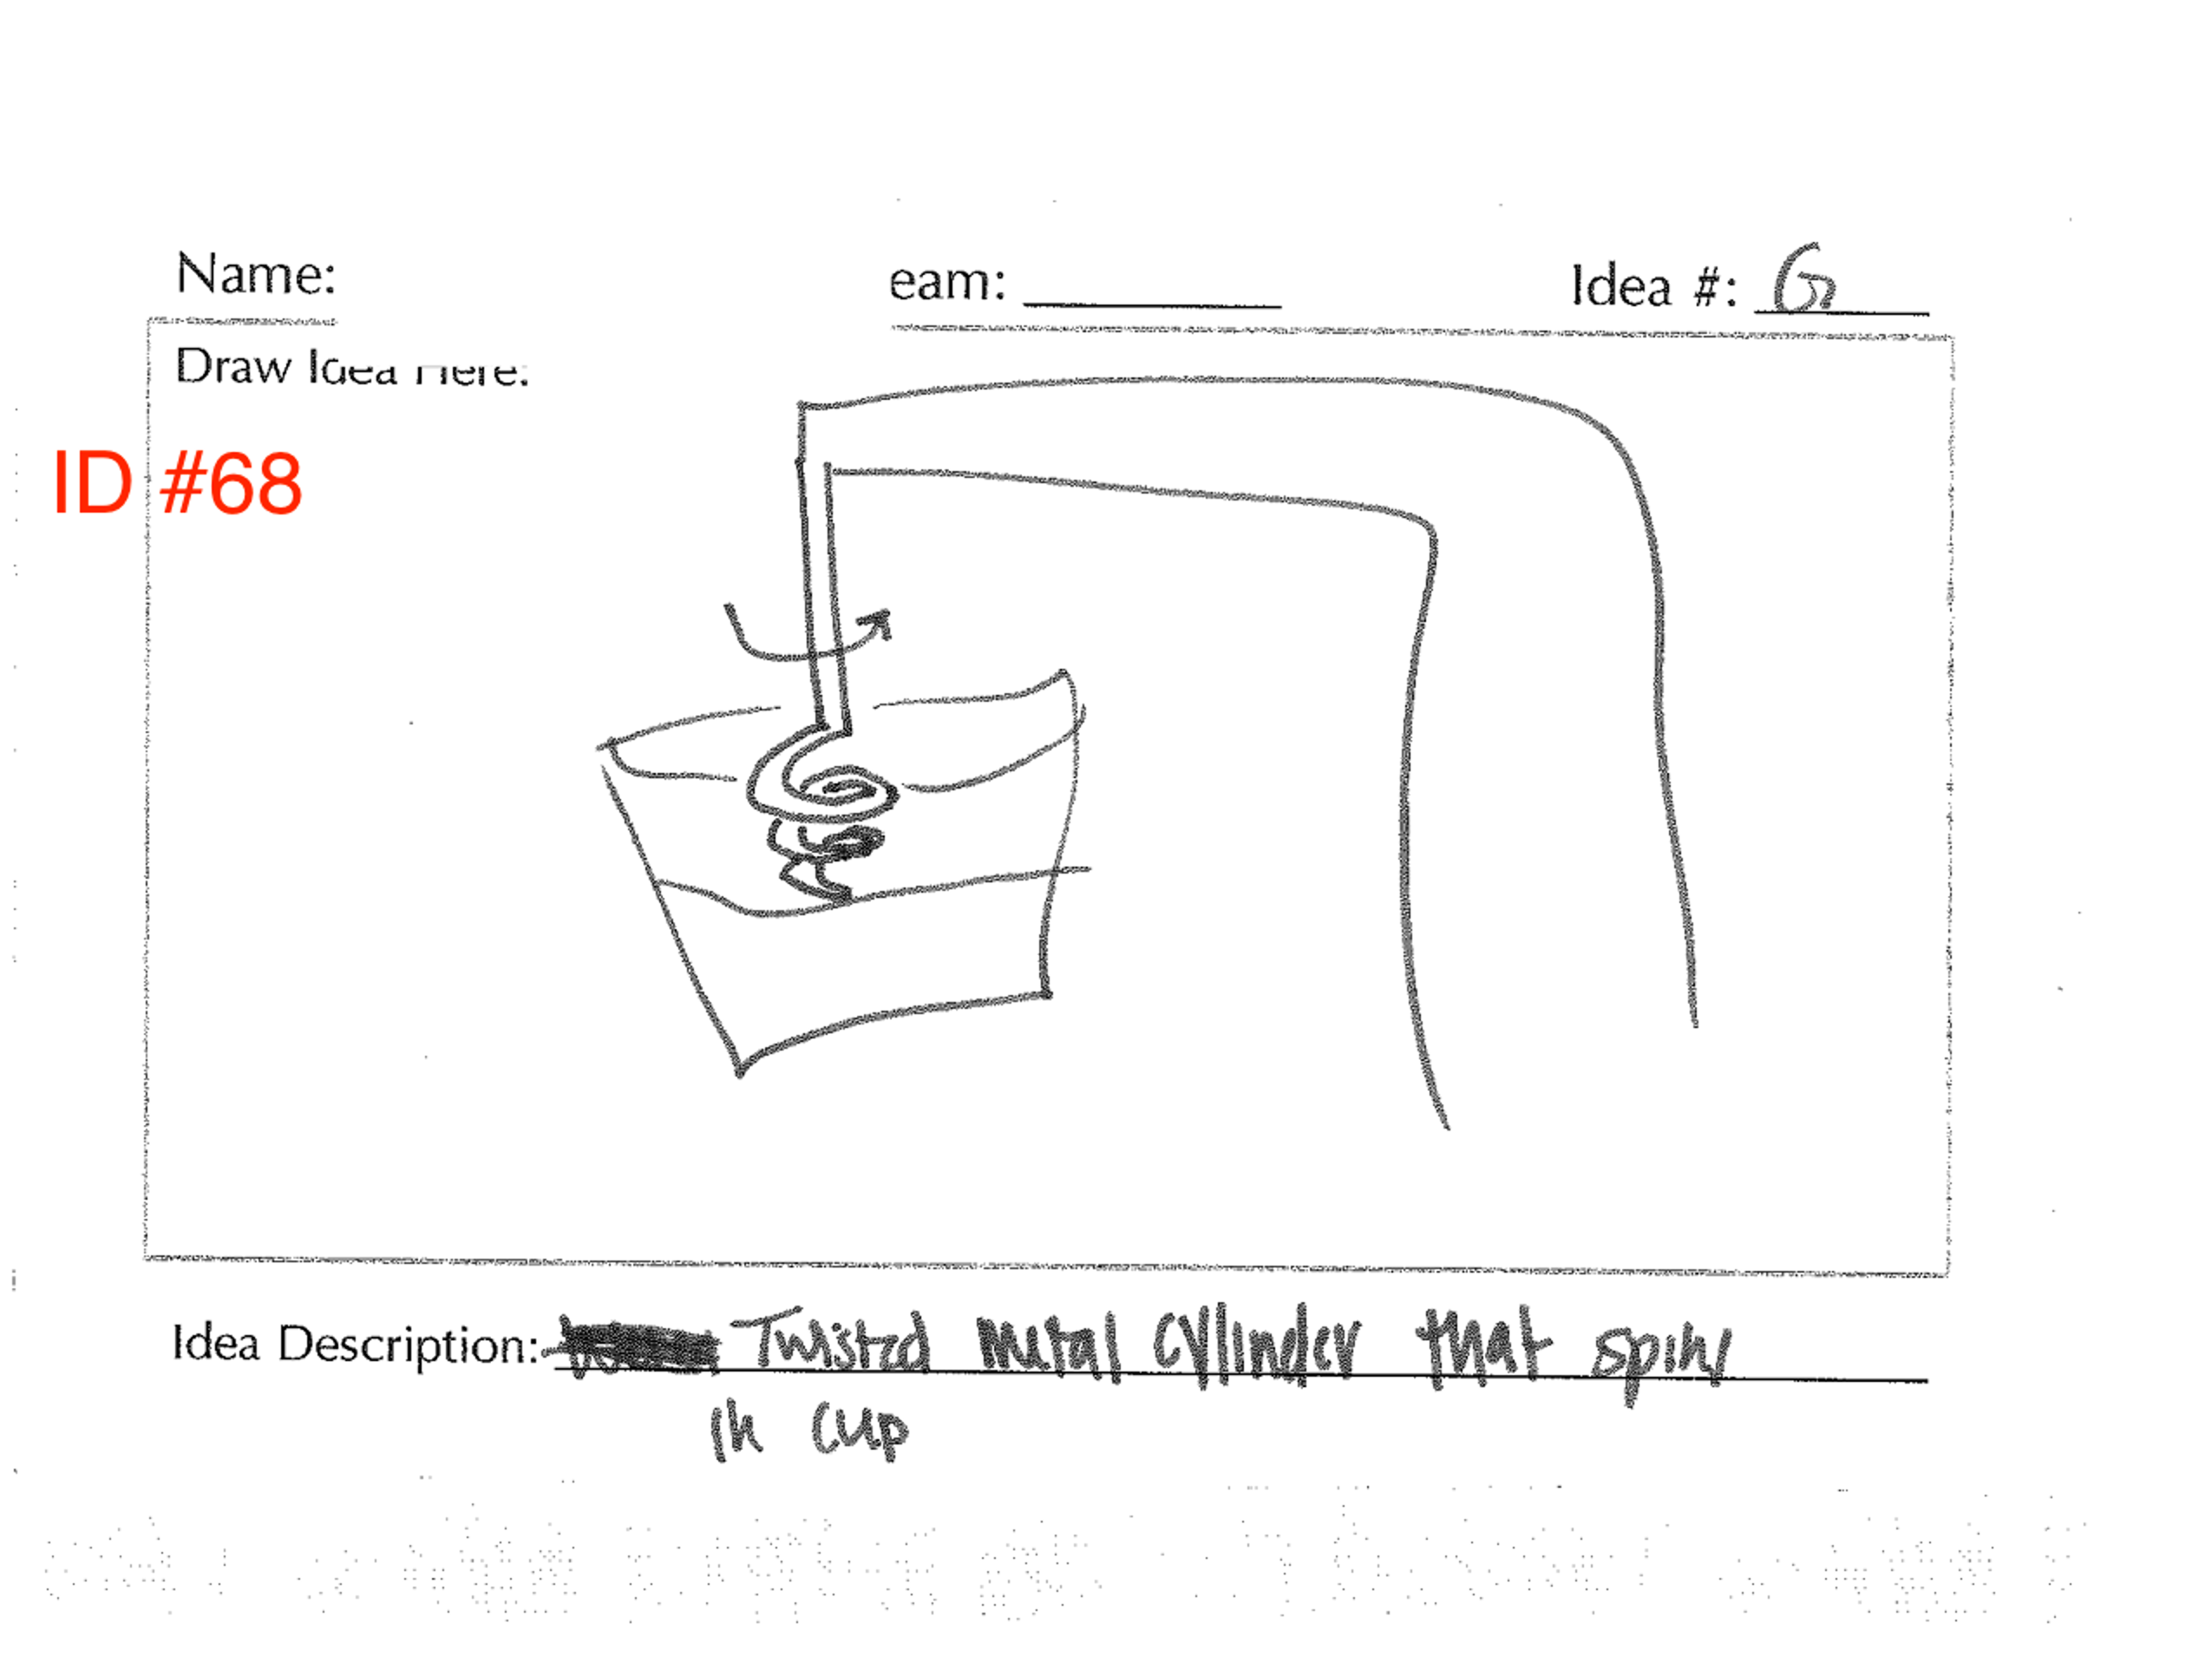 Name: eam: Idea #: G
Draw Idea Here:
ID #68
Idea Description: Twisted metal cylinder that spins
in cup